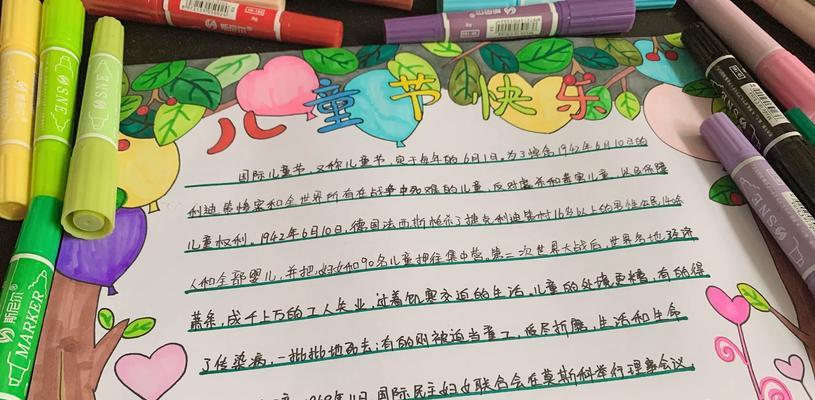 儿童节快乐
国际儿童节，又称儿童节，定于每年的6月1日。为了悼念1942年6月10日的
利迪策惨案和全世界所有在战争中死难的儿童，反对虐杀和毒害儿童，以及保障
儿童权利。1942年6月10日，德国法西斯枪杀了捷克利迪策村16岁以上的男性公民140余
人和全部婴儿，并把妇女和90名儿童押往集中营。第二次世界大战后，世界各地经济
萧条，成千上万的工人失业，过着饥寒交迫的生活。儿童的处境更糟，有的得
了传染病，一批批地死去；有的则被迫当童工，受尽折磨，生活和生命
国际民主妇女联合会在莫斯科举行理事会议，
斯尼尔
MARKER
SNE
SNE
SNE